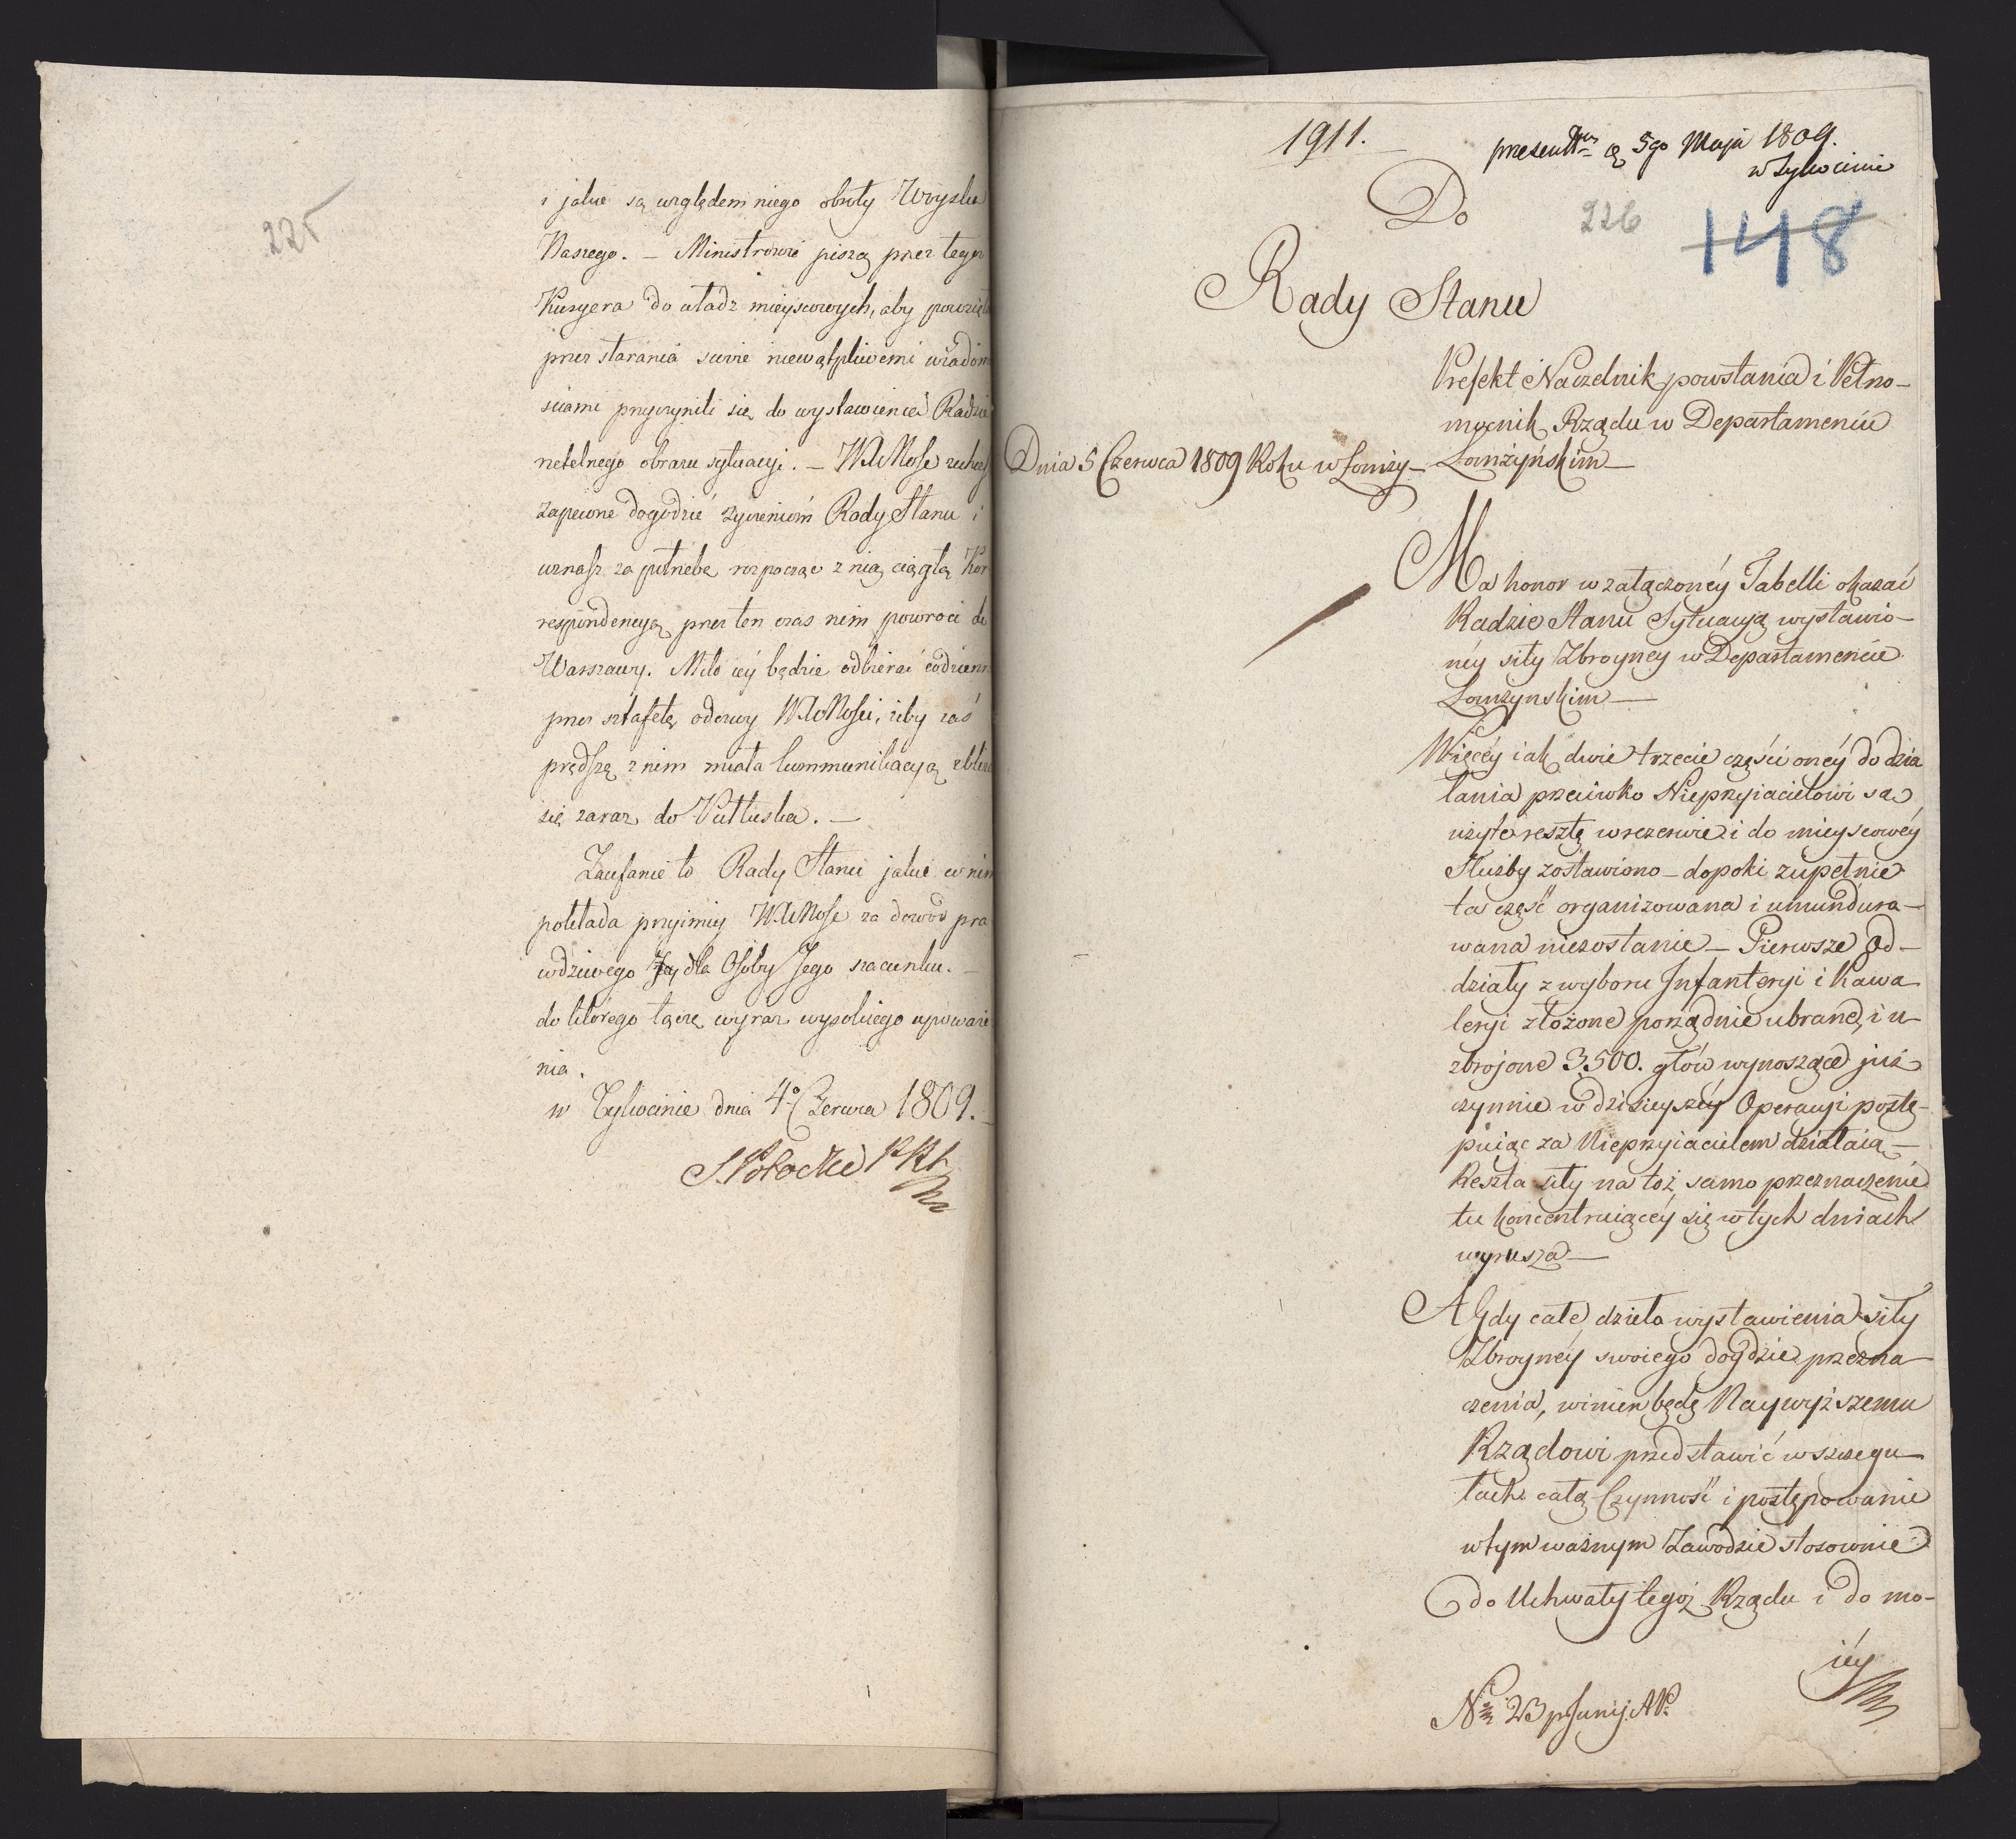 225
i jakie są względem niego obroty Woyska
Naszego. – Ministrowie piszą przez tegoż
Kuryera do władz mieyscowych, aby powzięte
przez starania swoie niewątpliwemi wiadomo
sciami przyczynili się do wystawienia Radzie
rzetelnego obrazu sytuacyi. – zechcesz
zapewne dogodzić życzeniom Rady Stanu i
uznasz za potrzebę rozpocząć z nią ciągłą Kor
respondencyą przez ten czas nim powroci do
Warszawy. Miło iey będzie odbierać codzienn
przez sztafetę odezwy żeby zaś
prędszą z nim miała kommunikacyą zbliża
się zaraz do Pułtuska. –
Zaufanie to Rady Stanu jakie w nim
pokłada przyimiy za dowód pra
wdziwego dla Osoby Jego szacunku. –
do którego łączę wyraz wysokiego upoważe
nia.
w Tykocinie dnia 4º Czerwca 1809. –
S. Potocki
1911. –
5go Maja 1809.
w Tykocinie
Do
226
148
Rady Stanu
Prefekt Naczelnik powstania i Pełno-
mocnik Rządu w Departamencie
Dnia 5 Czerwca 1809 Roku w Łomży –
Łomżyńskim –
Ma honor w załączonéy Tabelli okazać
Radzie Stanu Sytuacyą wystawio-
néy siły Zbroyney w Departamencie
Łomżynskim –
Więcéy iak dwie trzecie części onéy do dzia
łania przeciwko Nieprzyiacielowi są
użyte resztę w rezerwie i do mieyscowéy
Służby zostawiono – dopoki zupełnie
ta część organizowana i umundura-
wana niezostanie – Pierwsze Od-
działy z wyboru Infanteryi i Kawa
leryi złożone porządnie ubrane, i u-
zbrojone 3,500. głów wynoszące już
czynnie w dzisieyszéy Operacyi postę-
puiąc za Nieprzyiacielem działaią –
Reszta siły na toż samo przeznaczenie
tu koncentruiącey się w tych dniach
wyrusza –
A Gdy całe dzieło wystawienia siły
Zbroynéy swoiego dojdzie przezna-
czenia, winien będę Naywyższemu
Rządowi przedstawić w szczegu-
łach całą Czynność i postępowanie
w tym ważnym Zawodzie stosownie
do Uchwały tegoż Rządu i do mo-
iéy
Nro 23